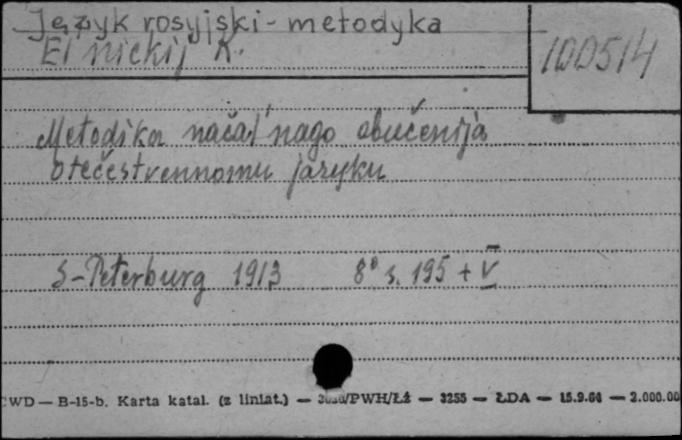 Język rosyjski - metodyka
El'nickij K.
100514
Metodika načal'nago obučenija
otečestvennomu jazyku
S-Peterburg 1913 8° s. 195 + V
CWD — B-15-b. Karta katal. (z liniat.) — /PWH/Łź — 3255 — ŁDA — 15.9.64 — 2.000.00